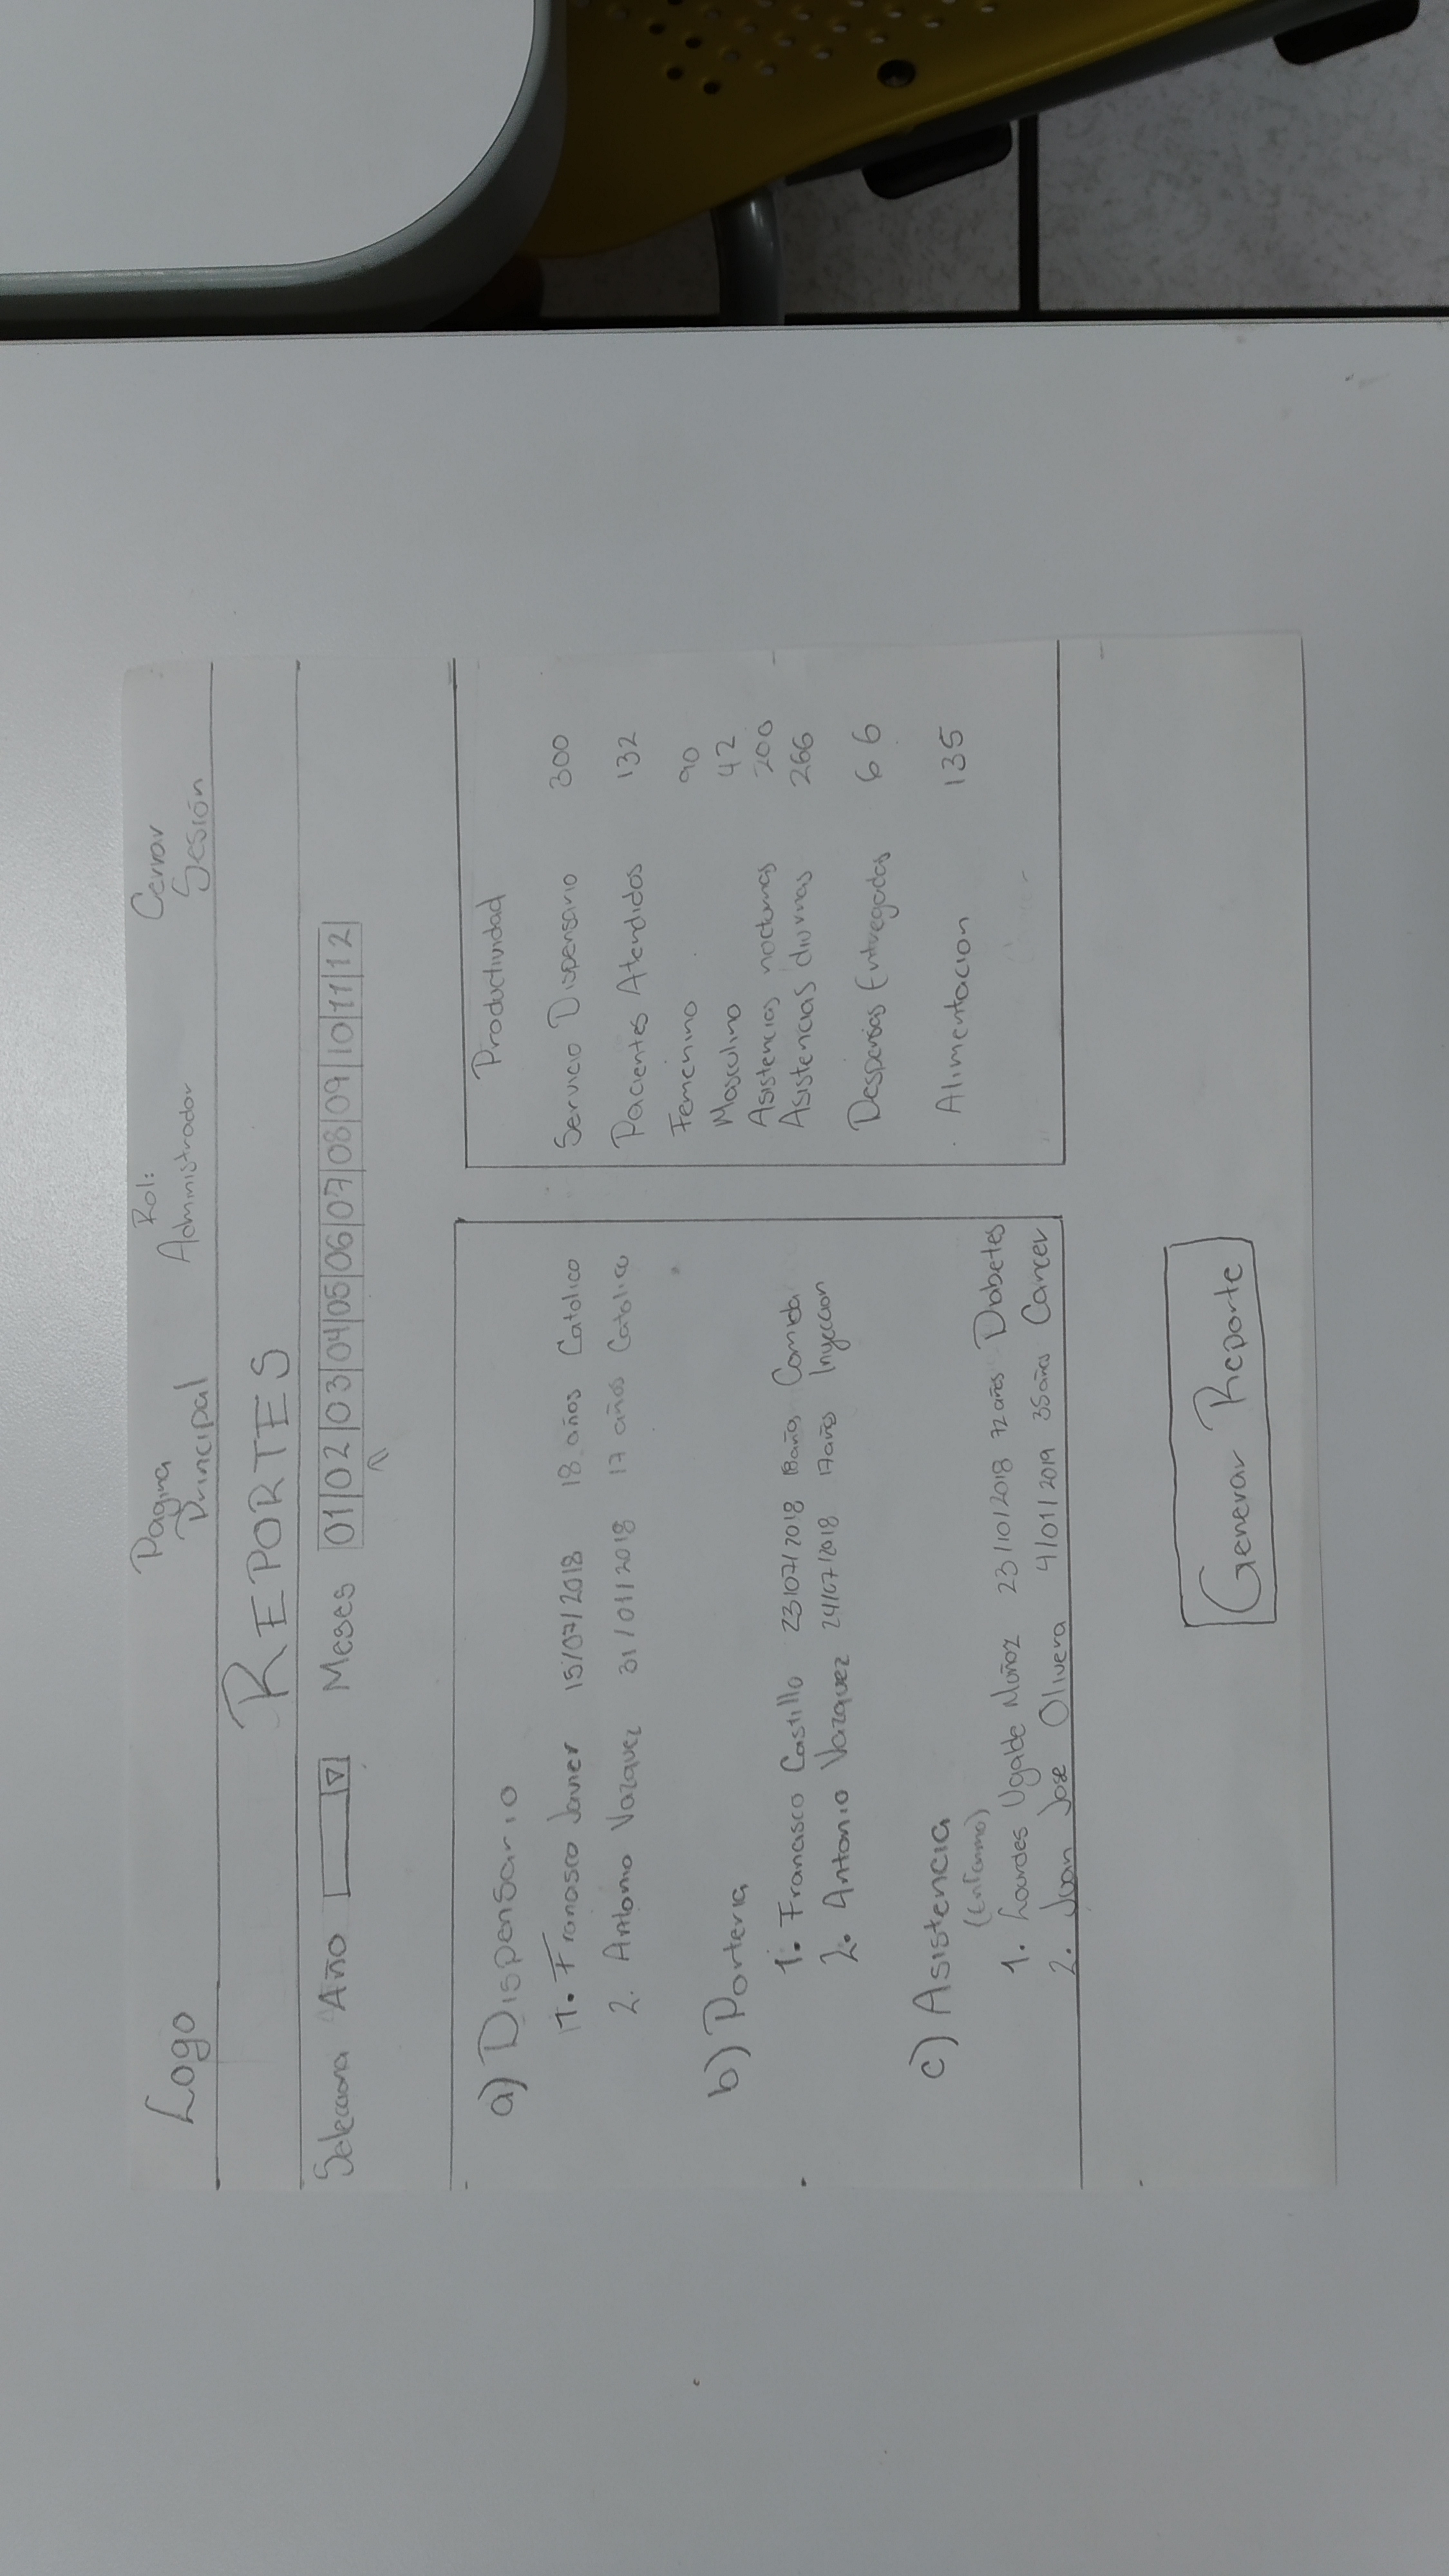 Logo Pagina Rol: Cerrar
Principal Administrador Sesión
REPORTES
Selecciona Año Meses 01 02 03 04 05 06 07 08 09 10 11 12
a) Dispensario
1. Francisco Javier 15/07/2018 18 años Catolico
2. Antonio Vazquez 31/01/2018 17 años Catolico
b) Porteria
1. Francisco Castillo 23/07/2018 18 años Comida
2. Antonio Vazquez 24/07/2018 17 años Inyeccion
c) Asistencia
(Enfermo)
1. Lourdes Ugalde Muñoz 23/10/2018 72 años Diabetes
2. Juan Jose Olivera 4/01/2019 35 años Cancer
Productividad
Servicio Dispensario 300
Pacientes Atendidos 132
Femenino 90
Masculino 42
Asistencias nocturnas 200
Asistencias diurnas 266
Despensas Entregadas 66
Alimentacion 135
Generar Reporte